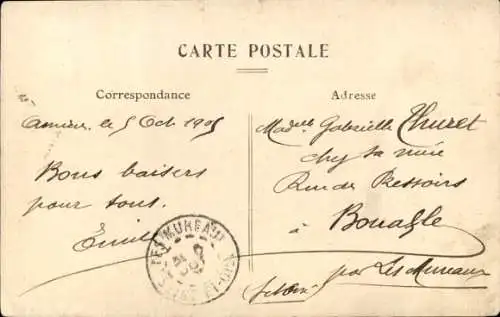 CARTE POSTALE
Correspondance
Adresse
le 5 Oct 1905
Bons baisers
pour tous.
Emile
Madlle Gabrielle Thuret
chez sa mère
Rue de Pressoirs
à Bouafle
par Les Mureaux
LES MUREAUX